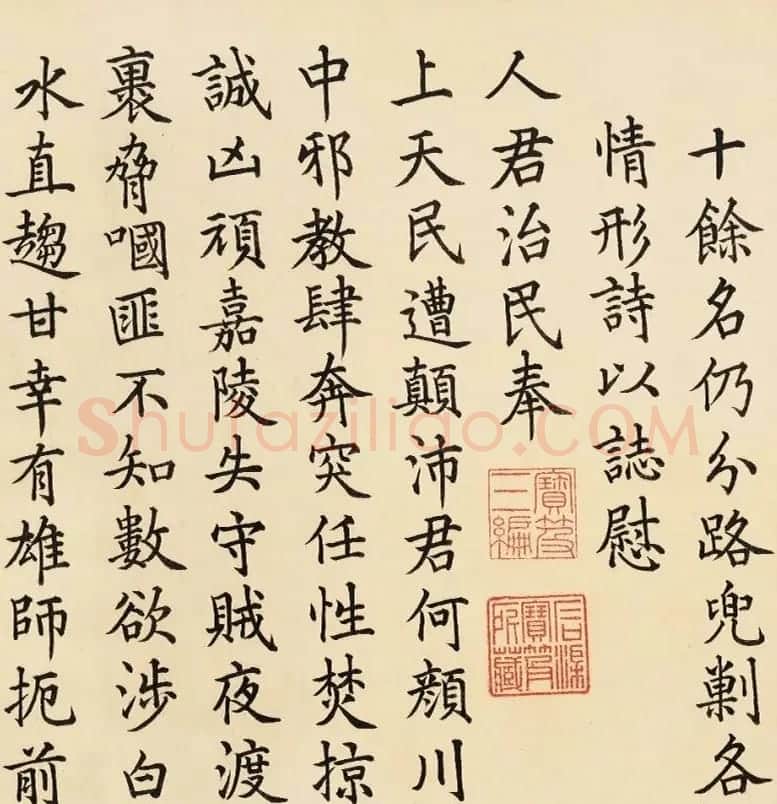 十餘名仍分路兜剿各
情形詩以誌慰
人君治民奉
上天民遭顛沛君何顏川
中邪教肆奔突任性焚掠
誠凶頑嘉陵失守賊夜渡
裹脅嘓匪不知數欲涉白
水直趨甘幸有雄師扼前
寶笈三編
石渠寶笈所藏
Shufaziliao.COM